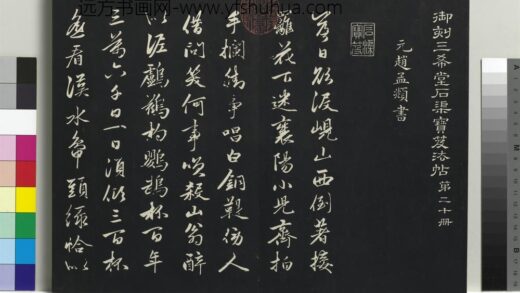 远方书画网-www.yfshuhua.com
御刻三希堂石渠寶笈法帖 第二十冊
元趙孟頫書
石渠寶笈
落日欲沒峴山西倒著接
䍦花下迷襄陽小兒齊拍
手攔街爭唱白銅鞮傍人
借問笑何事笑殺山翁醉
似泥鸕鶿杓鸚鵡杯百年
三萬六千日一日須傾三百杯
遙看漢水鴨頭綠恰似